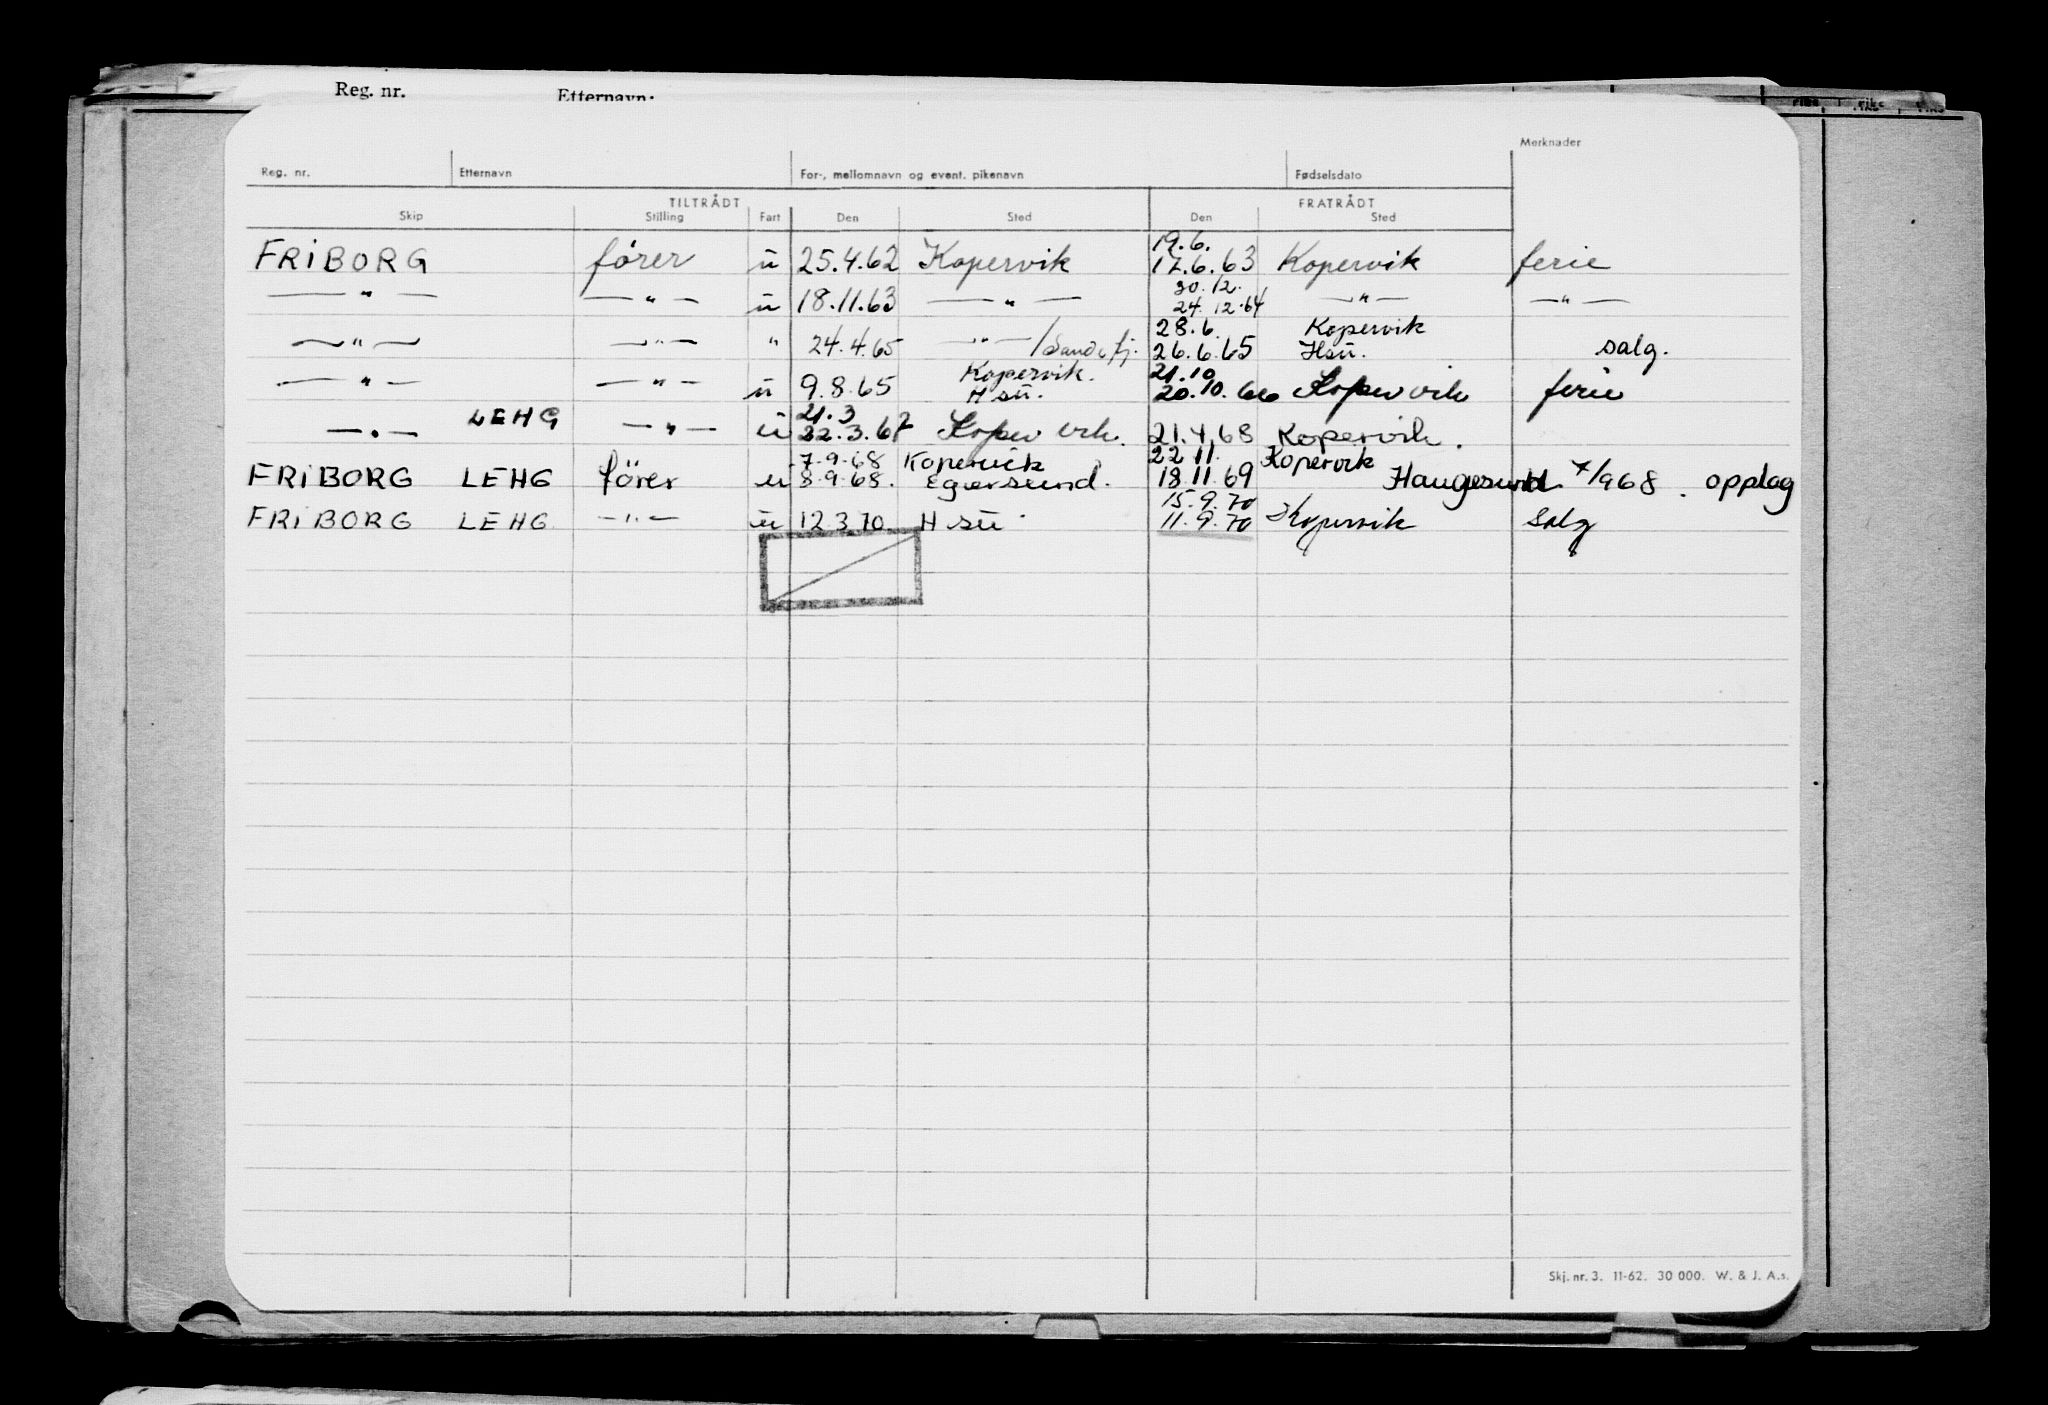 Reg. nr. Etternavn:
riks riks riks
Merknader
Reg. nr. Etternavn For-, mellomnavn og event. pikenavn Fødselsdato
TILTRÅDT FRATRÅDT
Skip Stilling Fart Den Sted Den Sted
19.6.
FRIBORG förer u 25.4.62 Kopervik 17.6.63 Kopervik ferie
30.12.
—"— —"— u 18.11.63 —"— 24.12.64 —"— —"—
28.6. Kopervik
—"— —"— " 24.4.65 —"—/Sandefj. 26.6.65 Hsu. salg.
Kopervik. 21.10
—"— —"— u 9.8.65 Hsu. 20.10.66 Kopervik ferie
21.3
—"— LEHG —"— u 22.3.67 Kopervik. 21.4.68 Kopervik.
7.9.68 Kopervik 22.11. Kopervik
FRIBORG LEHG förer u 8.9.68. Egersund. 18.11.69 Haugesund 7/1968. opplag
15.9.70
FRIBORG LEHG —"— u 12.3.70 Hsu 11.9.70 Kopervik Salg
Skj. nr. 3. 11-62. 30 000. W. & J. A.s.